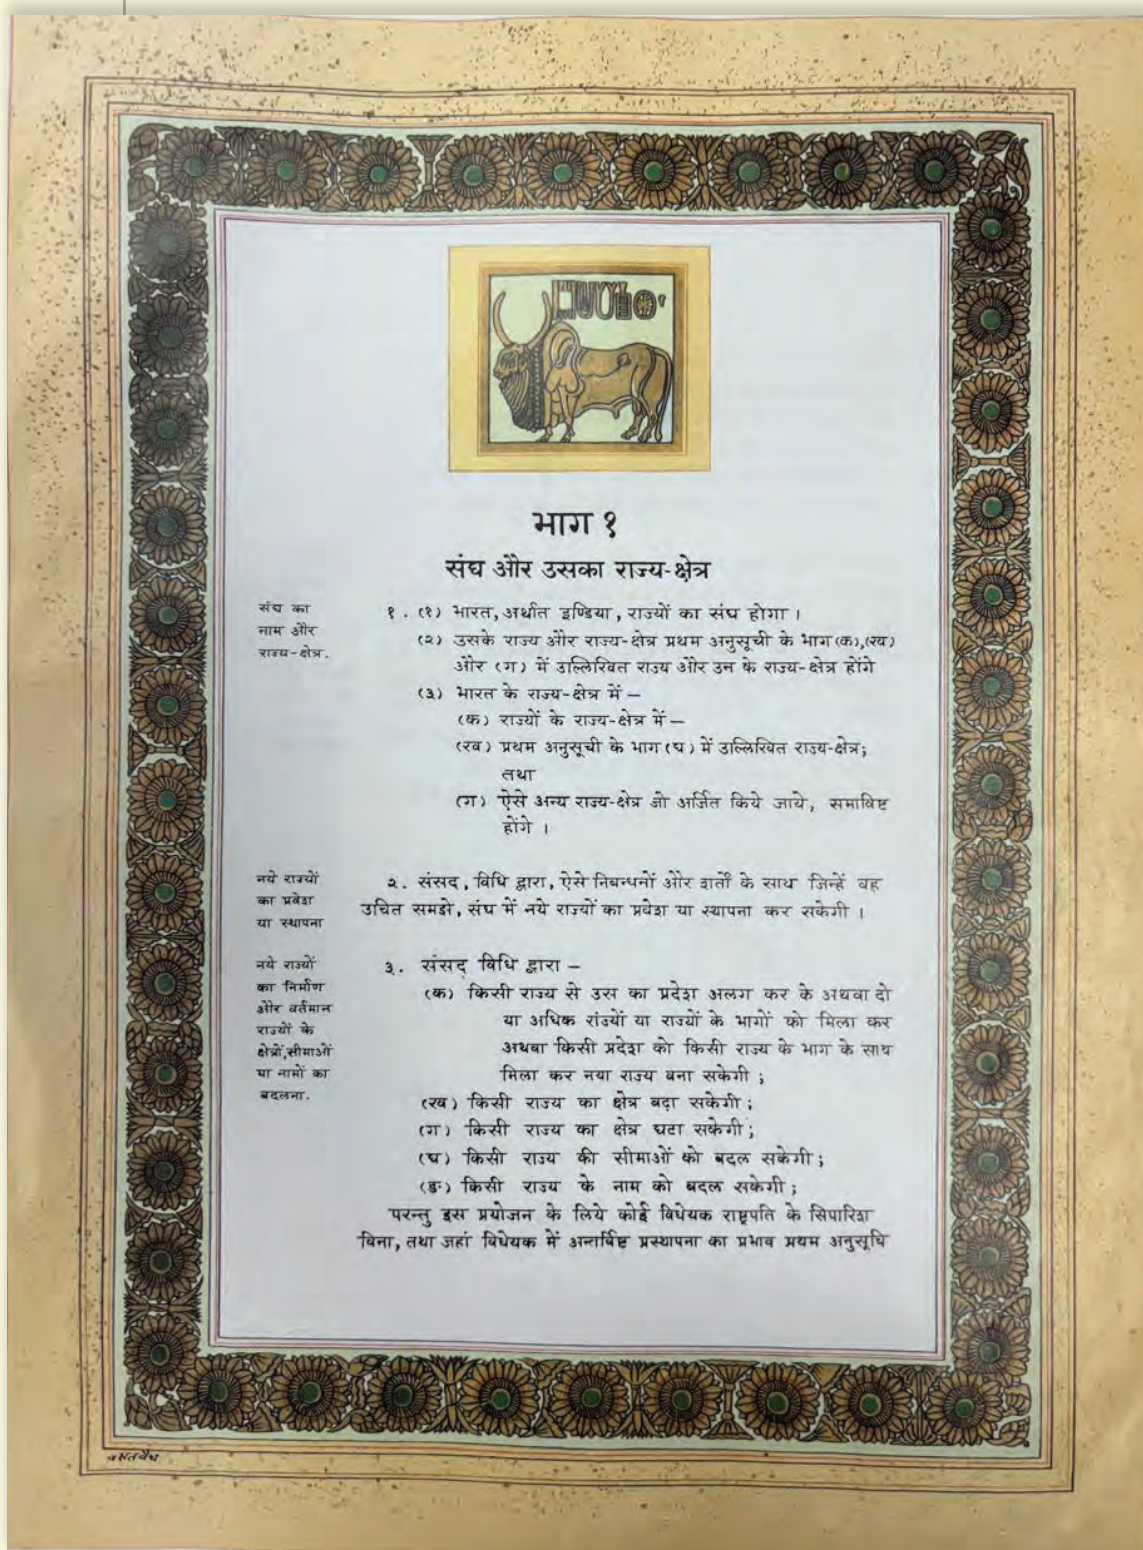 भाग १
संघ और उसका राज्य-क्षेत्र
संघ का
नाम और
राज्य-क्षेत्र.
१. (१) भारत, अर्थात इण्डिया, राज्यों का संघ होगा ।
(२) उसके राज्य और राज्य-क्षेत्र प्रथम अनुसूची के भाग (क),(ख)
और (ग) में उल्लिखित राज्य और उन के राज्य-क्षेत्र होंगे
(३) भारत के राज्य-क्षेत्र में —
(क) राज्यों के राज्य-क्षेत्र में —
(ख) प्रथम अनुसूची के भाग (घ) में उल्लिखित राज्य-क्षेत्र;
तथा
(ग) ऐसे अन्य राज्य-क्षेत्र जो अर्जित किये जाये, समाविष्ट
होंगे ।
नये राज्यों
का प्रवेश
या स्थापना
२. संसद, विधि द्वारा, ऐसे निबन्धनों और शर्तों के साथ जिन्हें वह
उचित समझे, संघ में नये राज्यों का प्रवेश या स्थापना कर सकेगी ।
नये राज्यों
का निर्माण
और वर्तमान
राज्यों के
क्षेत्रों, सीमाओं
या नामों का
बदलना.
३. संसद् विधि द्वारा —
(क) किसी राज्य से उस का प्रदेश अलग कर के अथवा दो
या अधिक रांज्यों या राज्यों के भागों को मिला कर
अथवा किसी प्रदेश को किसी राज्य के भाग के साथ
मिला कर नया राज्य बना सकेगी ;
(ख) किसी राज्य का क्षेत्र बढ़ा सकेगी ;
(ग) किसी राज्य का क्षेत्र घटा सकेगी ;
(घ) किसी राज्य की सीमाओं को बदल सकेगी ;
(ङ) किसी राज्य के नाम को बदल सकेगी ;
परन्तु इस प्रयोजन के लिये कोई विधेयक राष्ट्रपति के सिपारिश
विना, तथा जहां विधेयक में अन्तर्विष्ट प्रस्थापना का प्रभाव प्रथम अनुसूचि